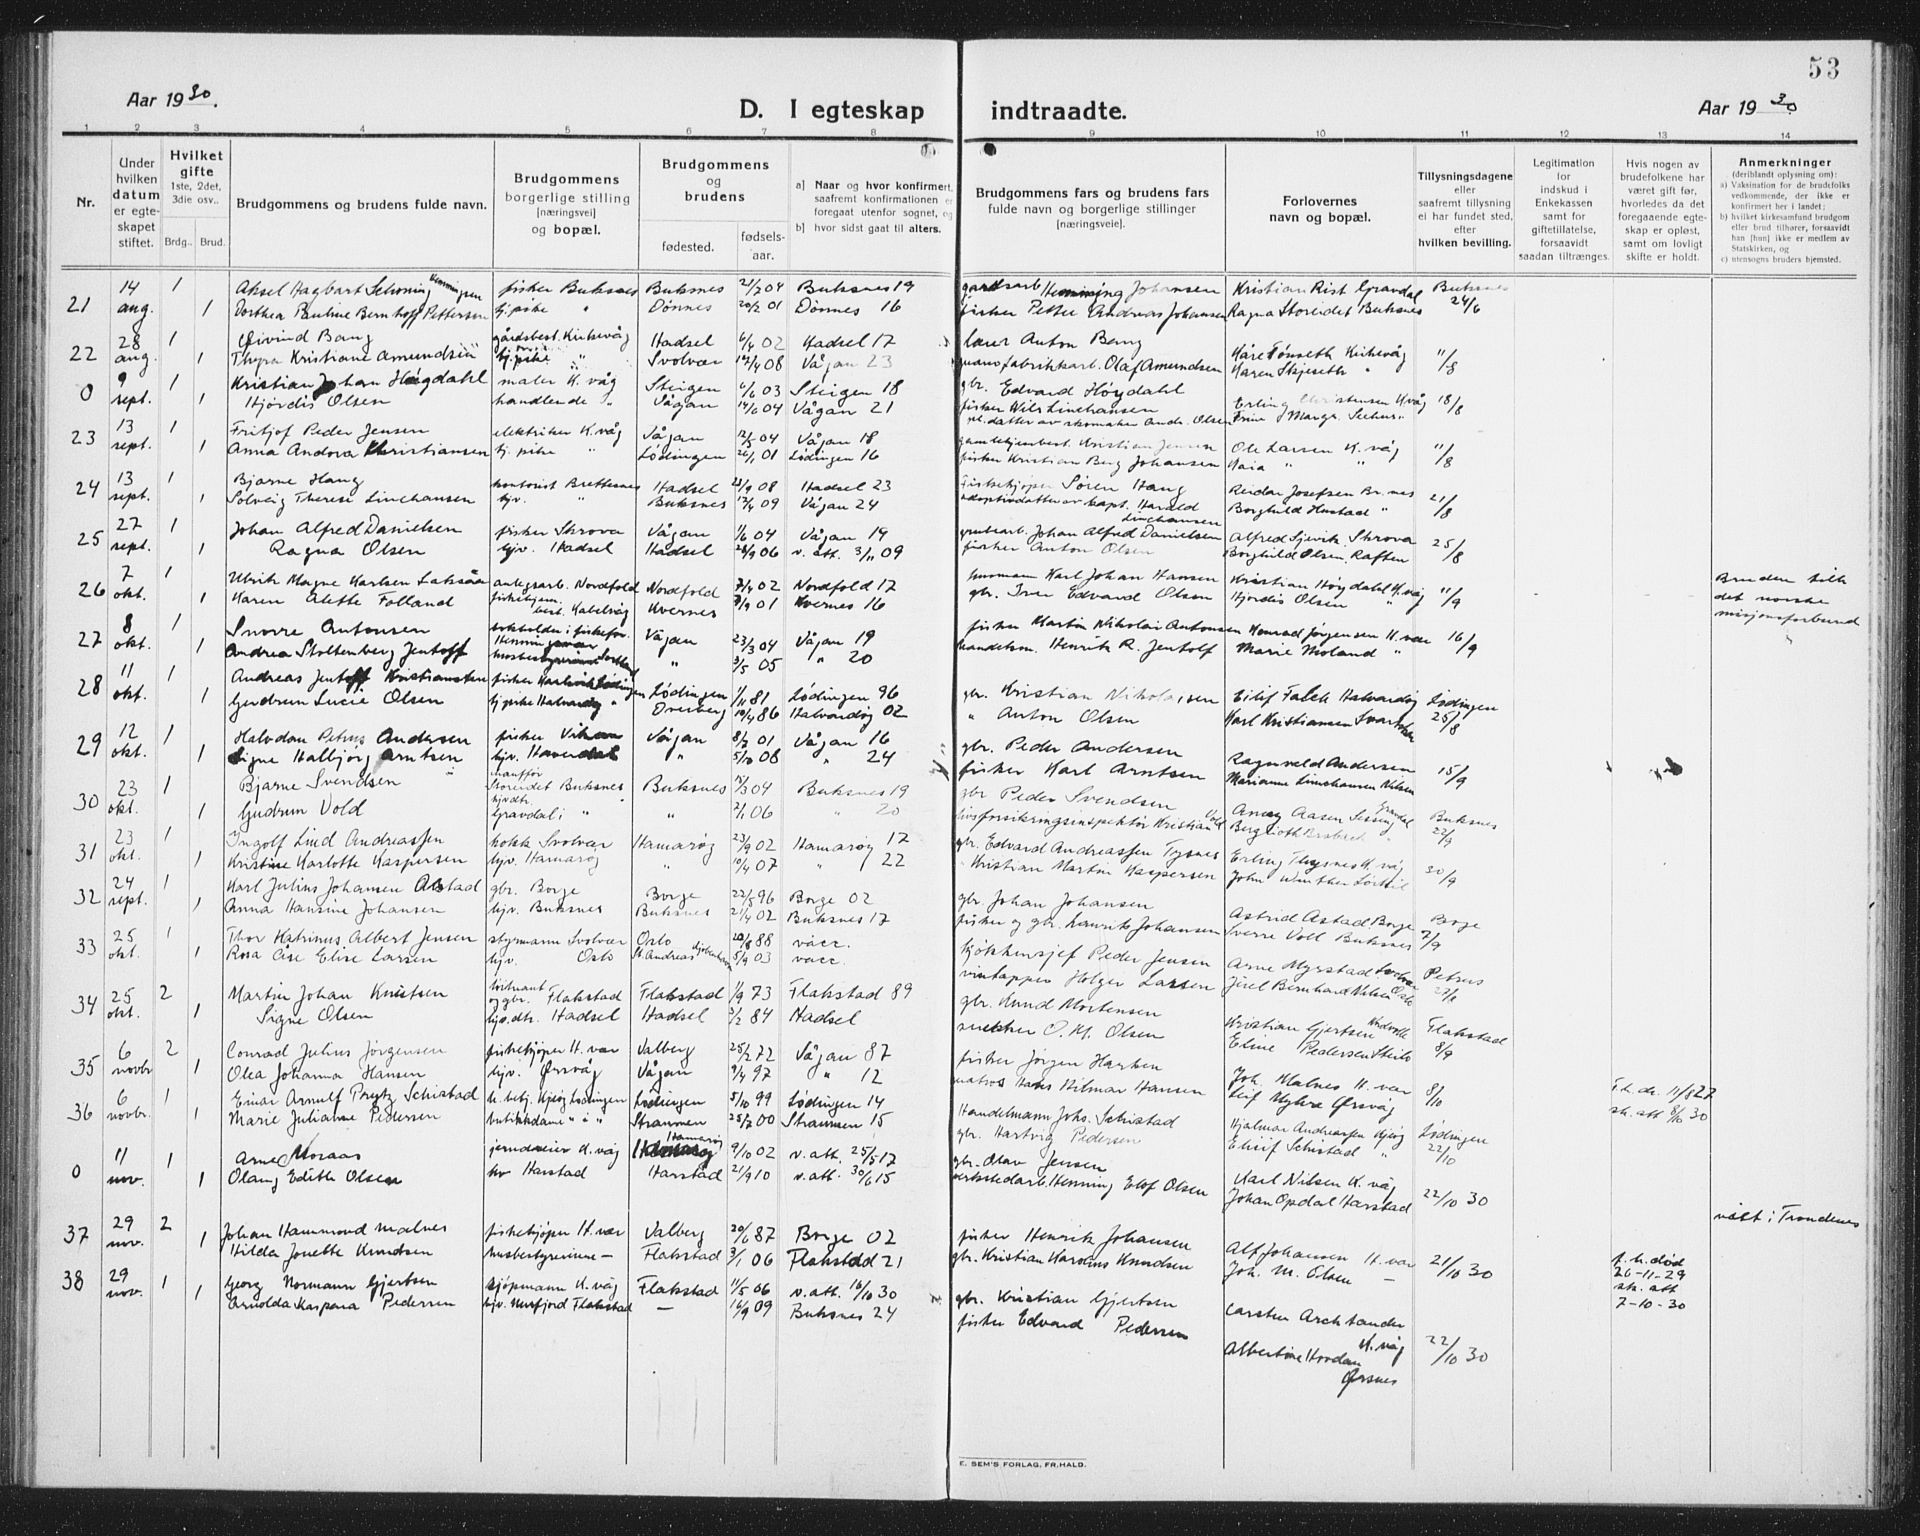 53
Aar 1930.
D. I egteskap indtraadte.
Aar 1930
1 2 3 4 5 6 7 8 9 10 11 12 13 14
Nr.
Under hvilken datum er egteskapet stiftet.
Hvilket gifte 1ste, 2det, 3die osv..
Brdg.. Brud.
Brudgommens og brudens fulde navn.
Brudgommens borgerlige stilling [næringsvei] og bopæl.
Brudgommens og brudens
fødested. fødsels-aar.
a] Naar og hvor konfirmert, saafremt konfirmationen er foregaat utenfor sognet, og
b] hvor sidst gaat til alters.
Brudgommens fars og brudens fars fulde navn og borgerlige stillinger [næringsveie].
Forlovernes navn og bopæl.
Tillysningsdagene eller saafremt tillysning ei har fundet sted, efter hvilken bevilling.
Legitimation for indskud i Enkekassen samt for giftetillatelse, forsaavidt saadan tiltrænges.
Hvis nogen av brudefolkene har været gift før, hvorledes da det foregaaende egteskap er opløst, samt om lovlig skifte er holdt.
Anmerkninger (deriblandt oplysning om:
a) Vaksination for de brudefolks vedkommende, der ikke er konfirmert her i landet;
b) hvilket kirkesamfund brudgom eller brud tilhører, forsaavidt han [hun] ikke er medlem av Statskirken, og
c) utensogns bruders hjemsted.
21 14 aug. 1 Aksel Hagbart Schøning Henningsen fisker Buksnes Buksnes 21/2 04 Buksnes 19 gårdsarb Henning Johansen Kristian Rist Gravdal Buksnes 24/6
1 Dorthea Pauline Bernhoff Pettersen hj. pike " Dønnes 20/2 01 Dønnes 16 fisker Petter Andreas Johansen Ragna Storeidet Buksnes
22 28 aug. 1 Øivind Bang gårdsbest. Kirkevåg Hadsel 6/4 02 Hadsel 17 lærer Anton Bang Kåre Tønseth Kirkevåg 11/8
1 Thyra Kristiane Amundsen hj. pike " Svolvær 12/4 08 Vågan 23 guanofabrikkarb. Olaf Amundsen Karen Skjeseth "
0 9 sept. 1 Kristian Johan Høgdahl maler K. våg Steigen 6/6 03 Steigen 18 gbr. Edvard Høydahl Erling Christensen K.våg 18/8
1 Hjørdis Olsen handlende " Vågan 14/6 04 Vågan 21 fisker Nils Linchausen
pl. datter av skomaker Andr. Olsen
23 13 sept. 1 Fritjof Peder Jensen elektriker K. våg Vågan 12/5 04 Vågan 18 Kristian Jensen Ole Larsen K. våg 11/8
1 Anna Andora Christiansen hj. pike " Lødingen 26/1 01 Lødingen 16 fisker Kristian Berg Johansen Maia " "
24 13 sept. 1 Bjarne Haug kontorist Brettesnes Hadsel 23/9 08 Hadsel 23 Fiskekjøper Søren Haug Reidar Josefsen Br.nes 21/8
1 Solveig Therese Linchausen hjv. " Buksnes 17/4 09 Vågan 24 adoptivdatter av kapt. Harald Linchausen Borghild Hustad "
25 27 sept. 1 Johan Alfred Danielsen fisker Skrova Vågan 1/6 04 Vågan 19 grubearb. Johan Alfred Danielsen Alfred Gjevik Skrova 25/8
1 Ragna Olsen hjv. Hadsel Hadsel 28/9 06 v. att. 3/11 09 fisker Anton Olsen Borghild Olsen Raften
26 7 okt. 1 Ulrik Magne Karlsen Laksåa anlegsarb. Nordfold Nordfold 7/4 02 Nordfold 17 husmann Karl Johan Hansen Kristian Høgdahl K. våg 11/9
1 Karen Alette Folland fiskehjem. best. Kabelvåg Kvernes 7/9 01 Kvernes 16 gbr. Iver Edvard Olsen Hjørdis Olsen "
Bruden tilh det norske misjonsforbund
27 8 okt. 1 Snorre Antonsen bokholder i fiskefor. Henningsvær Vågan 23/3 04 Vågan 19 fisker Martin Nikolai Antonsen Konrad Jørgensen H. vær 16/9
1 Andrea Stoltenberg Jentoft " 3/5 05 " 20 handelsm. Henrik R. Jentoft Marie Moland "
28 11 okt. 1 Andreas Jentoft Kristiansen fisker Lødingen Lødingen 1/11 81 Lødingen 96 gbr. Kristian Nikolaisen Eilif Falch Halvardøy Lødingen 25/8
1 Gudrun Lucie Olsen hj. pike Halvardøy " Dverberg 10/4 86 Halvardøy 02 " Anton Olsen Karl Kristiansen
29 12 okt. 1 Halvdan Petrus Andersen fisker Vågan 8/7 01 Vågan 16 gbr. Peder Andersen Ragnvald Andersen 15/9
1 Signe Halbjørg Arntsen hjv. " 5/10 08 " 24 fisker Karl Arntsen Marianne Linchausen Nilsen
30 23 okt. 1 Bjarne Svendsen chauffør Storeidet Buksnes Buksnes 15/3 04 Buksnes 19 gbr Peder Svendsen Buksnes 22/9
1 Gudrun Vold hjv.dtr. Gravdal i " " 2/1 06 " 20 livsforsikringsinspektør Kristian Vold
31 23 okt. 1 Ingolf Lind Andreassen kokk Svolvær Hamarøy 23/9 02 Hamarøy 17 gbr. Edvard Andreassen Tysnes Erling Thysnes K. våg 30/9
1 Kristine Karlotte Kaspersen hjv. Hamarøy " 10/4 07 " 22 " Kristian Martin Kaspersen John Winther
32 24 sept. 1 Karl Julius Johansen Alstad gbr. Borge Borge 22/5 96 Borge 02 gbr. Johan Johansen Astrid Astad Borge Borge 7/9
1 Anna Hansine Johansen hjv. Buksnes Buksnes 21/4 02 Buksnes 17 fisker og gbr. Laurits Johansen Sverre Voll Buksnes
33 25 okt. 1 Thor Katrinus Albert Jensen styrmann Svolvær Oslo 20/8 88 vacc. kjøkkensjef Peder Jensen Arne Myrstad Svolvær Petrus
1 Rosa Cise Elise Larsen hjv. Oslo St. Andreas 5/9 03 vacc. vintapper Holger Larsen Oslo
34 25 okt. 2 Martin Johan Knutsen og gbr. Flakstad Flakstad 1/9 73 Flakstad 89 gbr. Knud Mortensen Kristian Gjertsen Flakstad 8/9
1 Signe Olsen hjv.dtr. Hadsel Hadsel 3/2 84 Hadsel snekker O. M. Olsen Eline Pedersen
35 6 novbr 2 Conrad Julius Jørgensen fiskekjøper H. vær Valberg 25/2 72 Vågan 87 fisker Jørgen Joh. Malnes H. vær 8/10
1 Olea Johanna Hansen hjv. Ørsvåg Vågan 9/4 97 " 12 matros Hans Hilmar Hansen Leif Myhre Ørsvåg
f. h. dr. 11/8 27
sk. att 8/10 30
36 6 novbr. 1 Einar Arnulf Prytz Schistad Lødingen Lødingen 5/10 99 Lødingen 14 Handelmann Johs. Schistad Hjalmar Andreassen Lødingen 22/10
1 Marie Julianne Pedersen butikkdame " " Straumen 25/7 00 Straumen 15 gbr. Hartvig Pedersen Schistad "
0 11 nov. 1 Arne Moraas K. våg Hamarøy 9/10 02 v. att 25/5 17 gbr. Olav Jensen Karl Nilsen K. våg 22/10 30
1 Olaug Edith Olsen hv Harstad Harstad 21/9 10 v. att. 30/6 15 verkstedarb. Henning Elof Olsen Johan Opdal Harstad
viet i Trondenes
37 29 nov. 2 Johan Hammond Malnes fiskekjøper H. vær Valberg 20/6 87 Borge 02 fisker Henrik Johansen Alf Johansen H. vær 21/10 30
1 Hilda Jonette Knudsen husbestyrerinne — Flakstad 3/1 06 Flakstad 21 gbr. Kristian Karolius Knudsen Joh. M. Olsen —
f. h. død 26-11-29
sk. att 7-10-30
38 29 nov. 1 Georg Normann Gjertsen sjøpmann K. våg Flakstad 11/5 06 v. att. 16/10 30 gbr. Kristian Gjertsen Carsten Archtander K. våg 22/10 30
1 Arnolda Kaspara Pedersen hjv. Nusfjord Flakstad — 16/9 09 Buksnes 24 fisker Edvard Pedersen Albertine Hovdan Ørsnes
E. SEM'S FORLAG, FR.HALD.